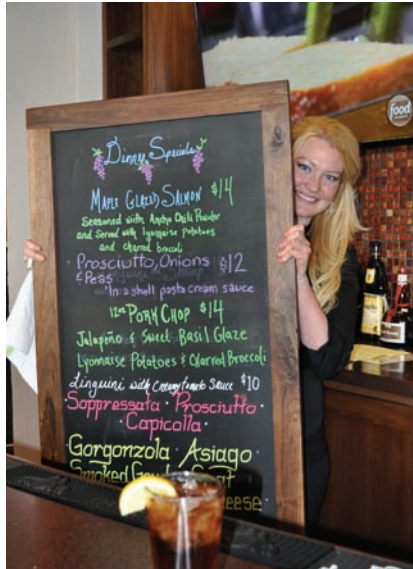 Dinner Specials
MAPLE GLAZED SALMON $14
Seasoned with Ancho Chili Powder
and Served with lyonnaise potatoes
and charred broccoli
· Prosciutto, Onions $12
& Peas
In a shell pasta cream sauce
12oz PORK CHOP $14
Jalapeño & Sweet Basil Glaze
Lyonnaise Potatoes & Charred Broccoli
Linguini with Creamy tomato Sauce $10
Soppressata · Prosciutto ·
· Capicolla ·
Gorgonzola · Asiago
Smoked Gouda Goat
Cheese
food